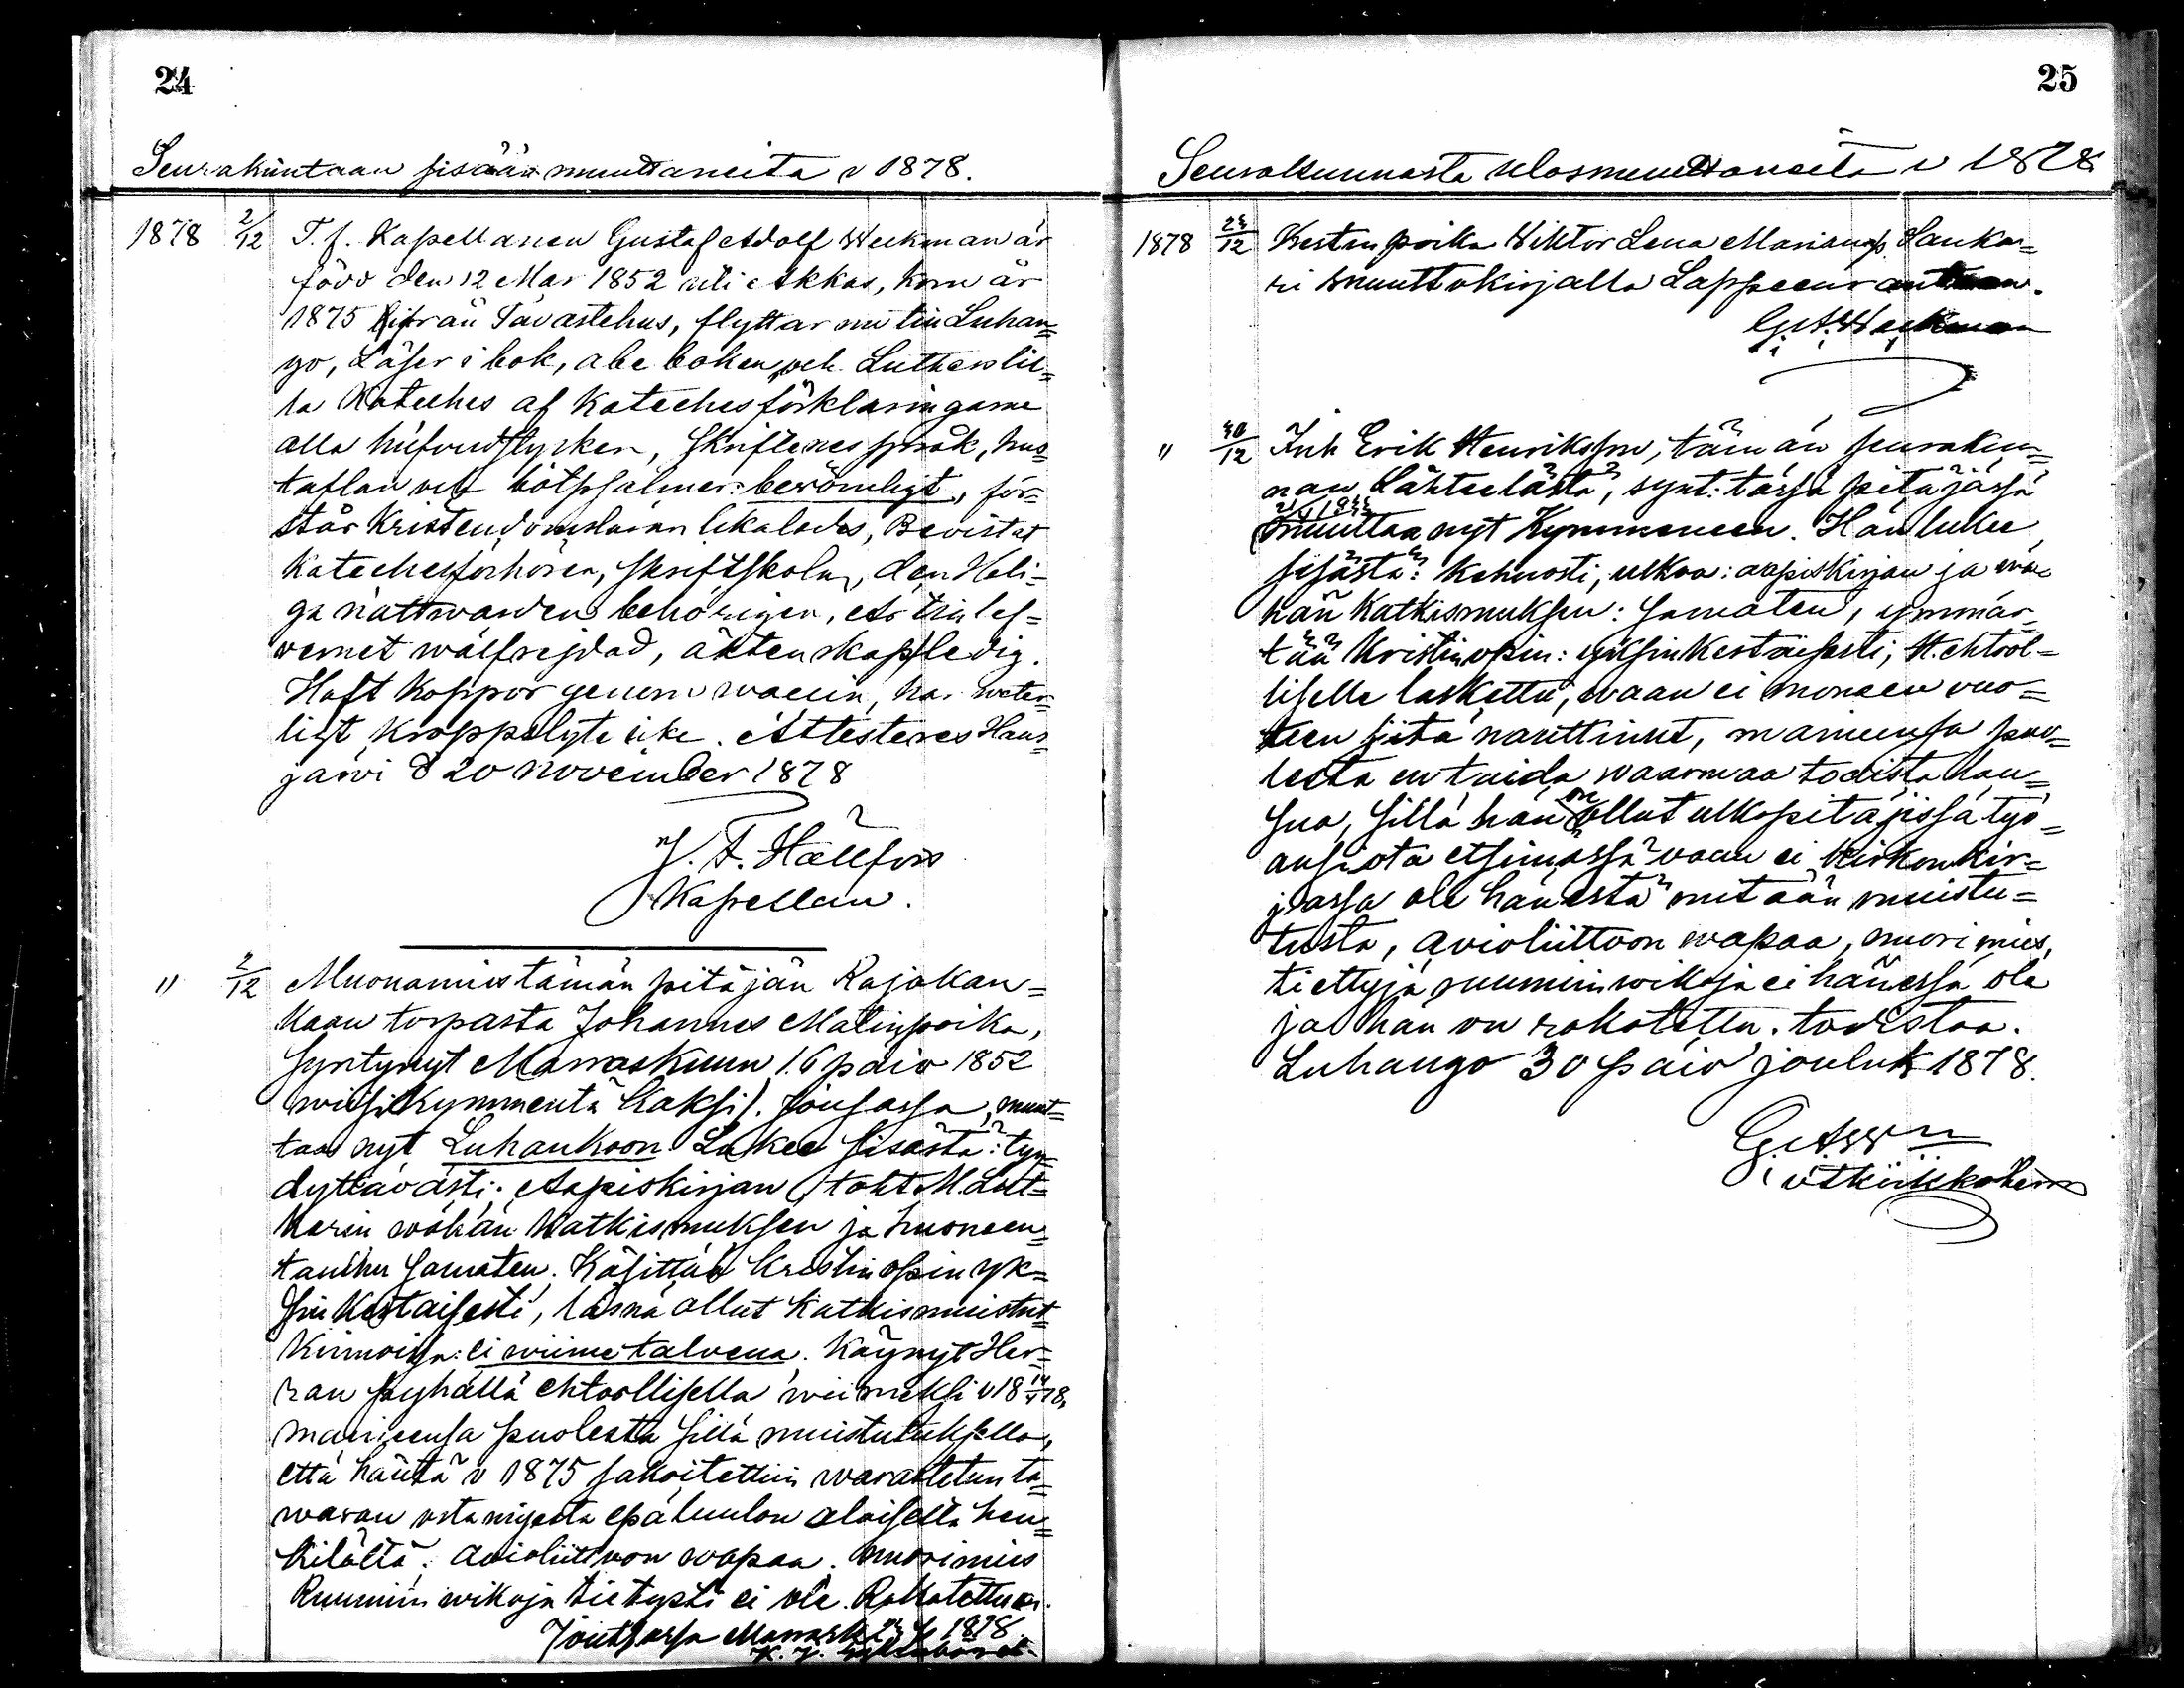 24
Seurakuntaan sisään muuttaneita v 1878.
1878 2/12 T. f. Kapellanen Gustaf Adolf Weckman är
född den 12 Mar 1852 uti Akkas, kom år
1875 hit från Tavastehus, flyttar nu till Luhan=
go, Läser i bok, abc boken, och Lutheri lil=
la Kateches af Katechesförklaringarne
alla hufvudstycken, Skriftenes språk, hus=
taflan och botpsalmer: berömligt, för=
står Kristendomsläran likaledes, Bevistat
Katechesförhören, skriftskolan, den Heli=
ga nattwarden behörigen, Är till lef=
vernet wälfrejdad, äktenskapsledig.
Haft Koppor genom vaccin, har veter=
ligt Kroppslyte icke. Attesteras Haus=
järvi d 20 november 1878
J. F. Hällfors
Kapellan.
" 2/12 Muonamies tämän pitäjän Rajakan=
kaan torpasta Johannes Matinpoika,
syntynyt Marraskuun 16 päiv 1852
(wiisikymmentä kaksi). Joutsassa, muut=
taa nyt Luhankoon. Lukee sisästä: tyy=
dyttävästi. Aapiskirjan, toht. M. Lut=
herin wähän Katkismuksen ja huoneen=
taulun samaten. Käsittää kristinopin yk=
sinkertaisesti, läsnä ollut katkismuistut=
kinnoissa: ei wiime talvena. Käynyt Her=
ran pyhällä ehtoollisella wiimeksi v 18 14/4 78,
maineensa puolesta sillä muistutuksella,
että häntä v 1875 sakoitettiin warastetun ta=
waran ostamisesta epäluulon alaisella hen=
kilöltä; avioliittoon wapaa. nuorimies
Ruumiin wikoja tietysti ei ole. Rokotettu on.
Joutsassa Marrask 1878.
25
Seurakunnasta ulosmuuttaneita v 1878
1878 28/12 Kestin poika Wiktor Lena Marianp. Sanka=
ri muuttokirjalla Lappeenrantaan.
G. A. Weckman
" 30/12 Inh Erik Henriksson, tämän seurakun=
nan Lähteelästä, synt: tässä pitäjässä
muuttaa nyt Kymmeneen. Hän lukee
sisästä: kehnosti, ulkoa: aapiskirjan ja wä=
hän Katkismuksen: samaten, ymmär=
tää Kristinopin: yksinkertaisesti, H. ehtool=
liselle laskettu, waan ei moneen vuo=
teen sitä nauttinut, maineensa puo=
lesta en taida waarmaa todista han=
suo, sillä hän on ollut ulkopitäjissä työ=
ansiota etsimässä vaan ei Kirkonkir=
jassa ole hänestä mitään muistu=
tusta, avioliittoon wapaa, nuori mies,
tiettyjä ruumiin wikoja ei hänessä ole
ja hän on rokotettu. todistaa.
Luhango 30 päiv jouluk 1878.
G. A. W
vt kirkkoherra